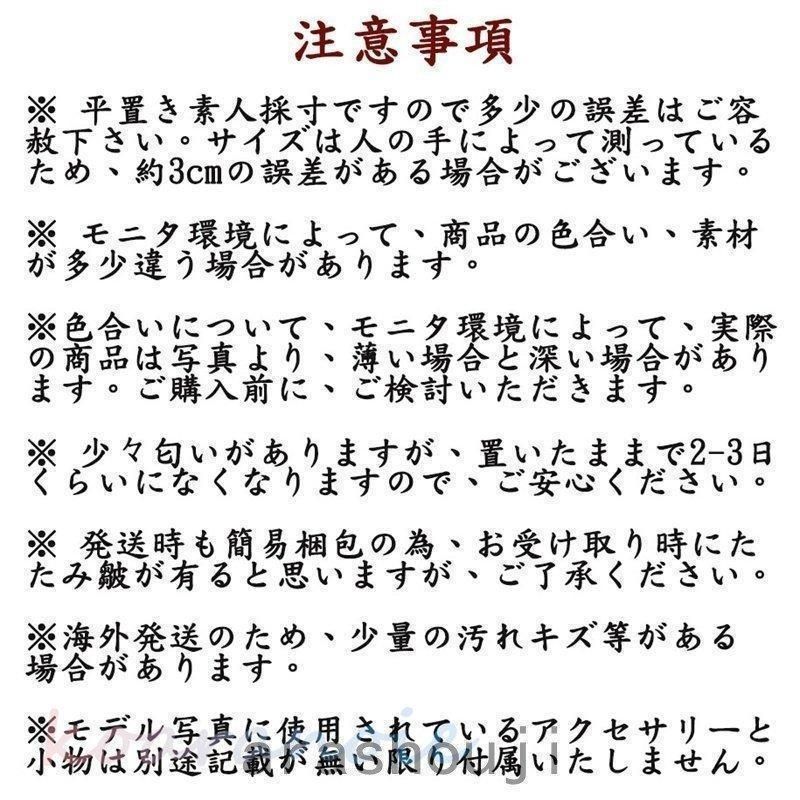 注意事項
※ 平置き素人採寸ですので多少の誤差はご容
赦下さい。サイズは人の手によって測っている
ため、約3cmの誤差がある場合がございます。
※ モニタ環境によって、商品の色合い、素材
が多少違う場合があります。
※色合いについて、モニタ環境によって、実際
の商品は写真より、薄い場合と深い場合があり
ます。ご購入前に、ご検討いただきます。
※ 少々匂いがありますが、置いたままで2-3日
くらいになくなりますので、ご安心ください。
※ 発送時も簡易梱包の為、お受け取り時にた
たみ皺が有ると思いますが、ご了承ください。
※海外発送のため、少量の汚れキズ等がある
場合があります。
※モデル写真に使用されているアクセサリーと
小物は別途記載が無い限り付属いたしません。
arashouji